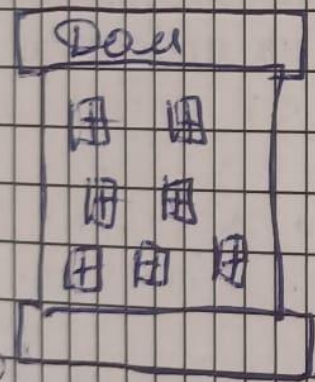 Дом